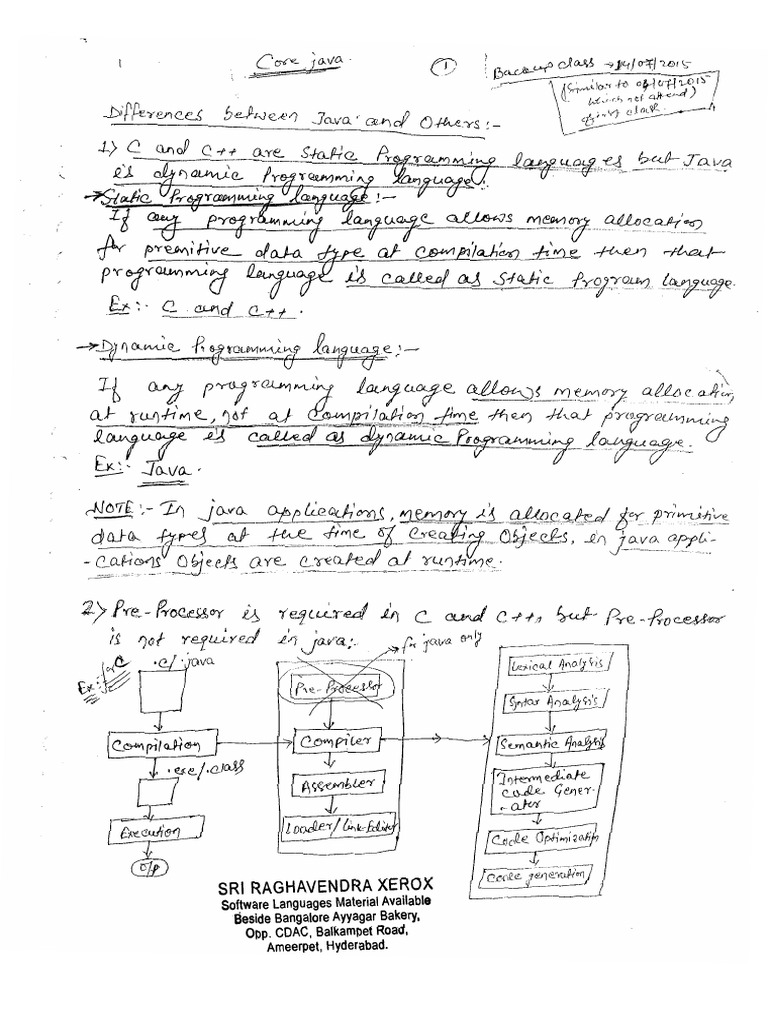 1
Core java.
1
Backup class → 14/07/2015
(Similar to 07/2015
which not attend)
class.
Differences between Java and Others:-
1) C and C++ are Static Programming languages but Java
is dynamic Programming language.
→ Static Programming language:-
If any programming language allows memory allocation
for premitive data type at compilation time then that
programming language is called as Static Program language.
Ex:- C and C++.
→ Dynamic Programming language:-
If any programming language allows memory allocation
at runtime, not at Compilation time then that programming
language is called as dynamic Programming language.
Ex:- Java.
NOTE:- In java applications, memory is allocated for primitive
data types at the time of Creating Objects, in java appli-
-cations Objects are created at runtime.
2) Pre-Processor is required in C and C++, but Pre-Processor
is not required in java:.
for java only
Ex: for C
.c/.java
Compilation
.exe/.class
Execution
o/p
Pre-Processor
Compiler
Assembler
Loader/Link-Editor
Lexical Analysis
Syntax Analysis
Semantic Analysis
Intermediate
Code Gener-
-ator
Code Optimization
Code generation
SRI RAGHAVENDRA XEROX
Software Languages Material Available
Beside Bangalore Ayyagar Bakery,
Opp. CDAC, Balkampet Road,
Ameerpet, Hyderabad.